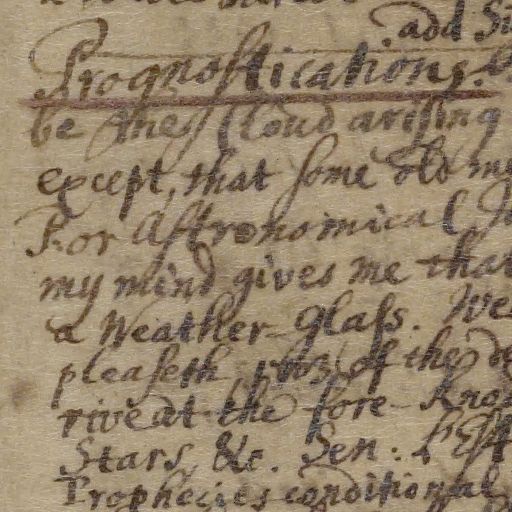 add
Prognostications.
be the Cloud arising
except, that some old
For Astronomical
my mind gives me that
a Weather-Glass. We
pleaseth of the
rive at the fore-Know
Stars, &c. Sen: l'Est
Prophecies conditional